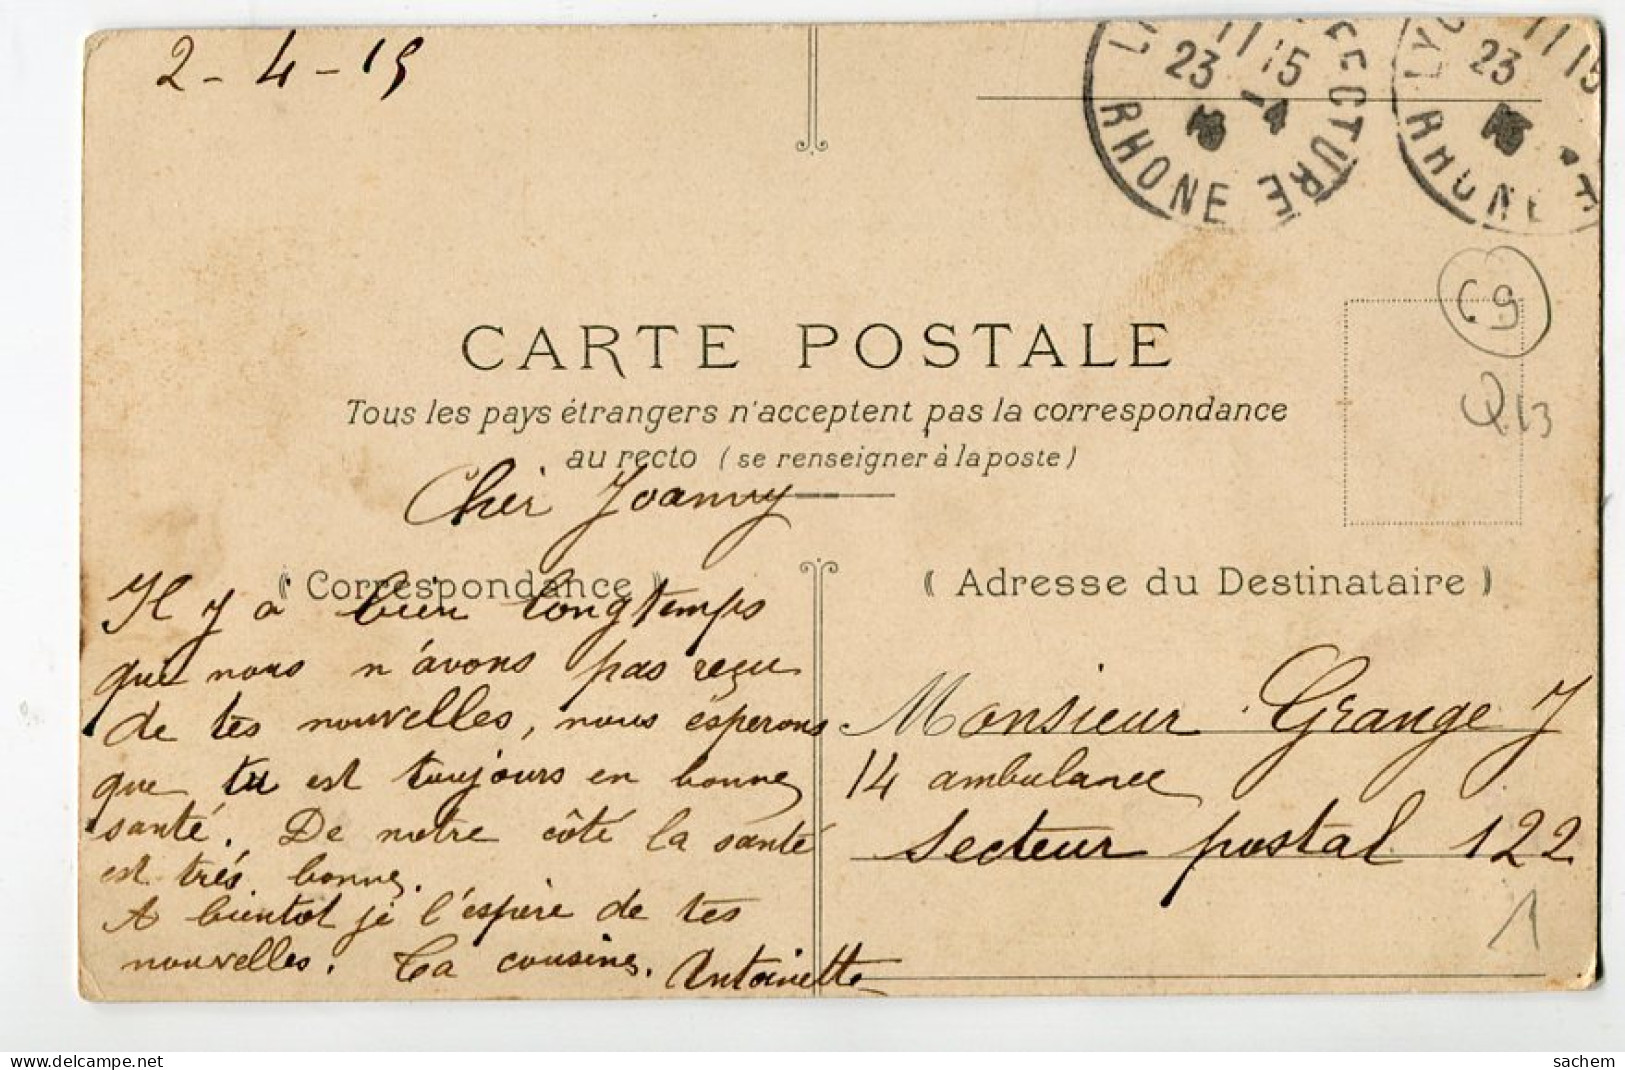 2-4-15
RHONE
23 11 15
-4
RHONE
23 11 15
CARTE POSTALE
Tous les pays étrangers n'acceptent pas la correspondance
au recto (se renseigner à la poste)
C9
Q13
Cher Joanny
Correspondance
Il y a bien longtemps
que nous n'avons pas reçu
de tes nouvelles, nous éspérons
que tu est toujours en bonne
santé. De notre côté la santé
est trés bonne.
A bientot je l'éspère de tes
nouvelles. Ta cousine. Antoinette
Adresse du Destinataire
Monsieur Grange J
14 ambulance
Secteur postal 122
1
delcampe.net
sachem